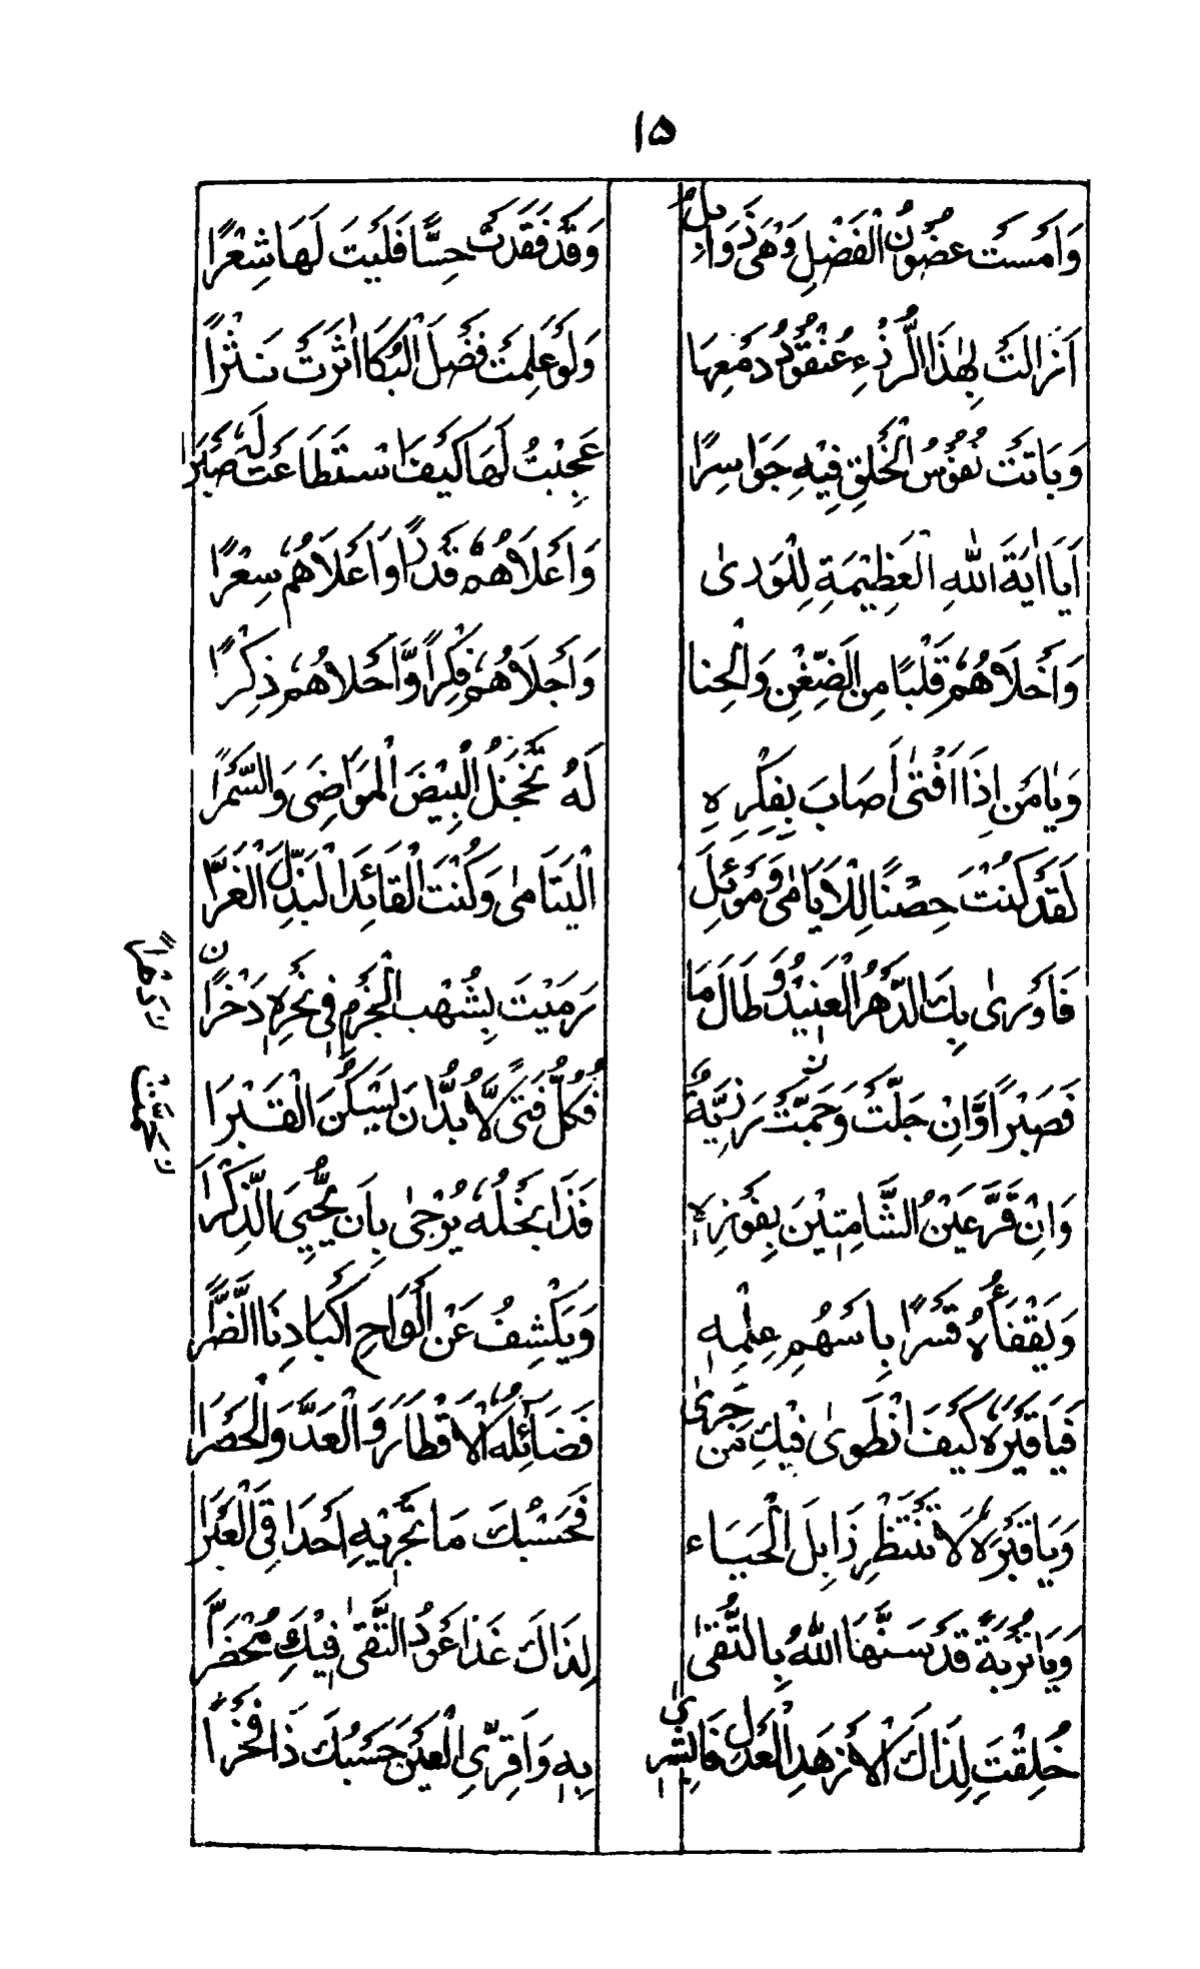 ۱۵
وَاَمْسَتْ غُصُوْنُ الْفَضْلِ وَهْیَ ذَوَابِلٌ وَقَدْ فَقَدَتْ حِسًّا فَلَیْتَ لَهَا شِعْرًا
اَزَالَتْ لِهٰذَا الرُّزْءِ عُنْقُوْدُ دَمْعِهَا وَلَوْ عَلِمَتْ فَضْلَ الْبُكَا اٰثَرَتْ نَثْرًا
وَبَاتَتْ نُفُوْسُ الْخَلْقِ فِیْهِ جَوَاسِرًا عَجِبْتُ لَهَا كَیْفَ اسْتَطَاعَتْ لَهٗ صَبْرَا
اَیَا اٰیَةَ اللّٰهِ الْعَظِیْمَةِ لِلْوَرىٰ وَاَعْلَاهُمْ قَدْرًا وَاَعْلَاهُمْ سِعْرًا
وَاَخْلَاهُمْ قَلْبًا مِنَ الضِّغْنِ وَالْخِنا وَاَجْلَاهُمْ فِكْرًا وَّاَحْلاهُمْ ذِكْرًا
وَیٰا مَنْ اِذَا اَفْتىٰ اَصَابَ بِفِكْرِهٖ لَهٗ تَخْجَلُ الْبِیْضَ الْمَوَاضِیَ وَالسُّمْرَا
لَقَدْ كُنْتَ حِصْنًا لِلْاَیَامٰى وَمَوْئِلَ الْیَتَامىٰ وَكُنْتَ الْقَائِدَ الْبَذِلَ الْغَرَّا
فَاَوْرىٰ بِكَ الدَّهْرُ الْعَنِیْدُ وَطَالَ مَا رَمَیْتَ بِشُهْبِ الْحَزْمِ فِیْ نَحْرِهٖ دَحْرًا
ن
فَصَبْرًا وَّاِنْ جَلَّتْ وَجَمَّتْ رَزِیَّةٌ فَكُلُّ فَتىً لَّا بُدَّ اَنْ یَسْكُنَ الْقَبْرَا
ن
وَاِنْ قَرَّ عَیْنُ الشَّامِتِیْنَ بِفَوْزِهٖ فَذَا نَجْلُهٗ یُرْجىٰ بِاَنْ یُّحْیِیَ الذِّكْرَا
وَیَقْفَاُهُ قَسْرًا بِاَسْهُمِ عِلْمِهٖ وَیَكْشِفُ عَنْ اَلْوَاحِ اَكْبَادِنَا الضُّرَّا
فَیَا قَبْرَهٗ كَیْفَ انْطَوىٰ فِیْكَ مَنْ جَرىٰ فَضَائِلُهُ الْاَقْطَارَ وَالْعَدَّ وَالْحَصْرَا
وَیَا قَبْرَهٗ لَا تَنْتَظِرْ زَابِلَ الْحَیَاء فَحَسْبُكَ مَا تُجْرِیْهِ اَحْدَاقِیَ الْعَبْرٰی
وَیَا تُرْبَةً قَدْ سَنَّهَا اللّٰهُ بِالتُّقىٰ لِذَاكَ غَدَا عَوْدُ التُّقىٰ فِیْكِ مُخْضَرًّا
خُلِقْتِ لِذَاكَ الْاَزْهَدِ الْعَدْلِ فَابْشِرِیْ بِهٖ وَاَقِرِّی الْعَیْنَ حَسْبُكَ ذَا فَخْرًا